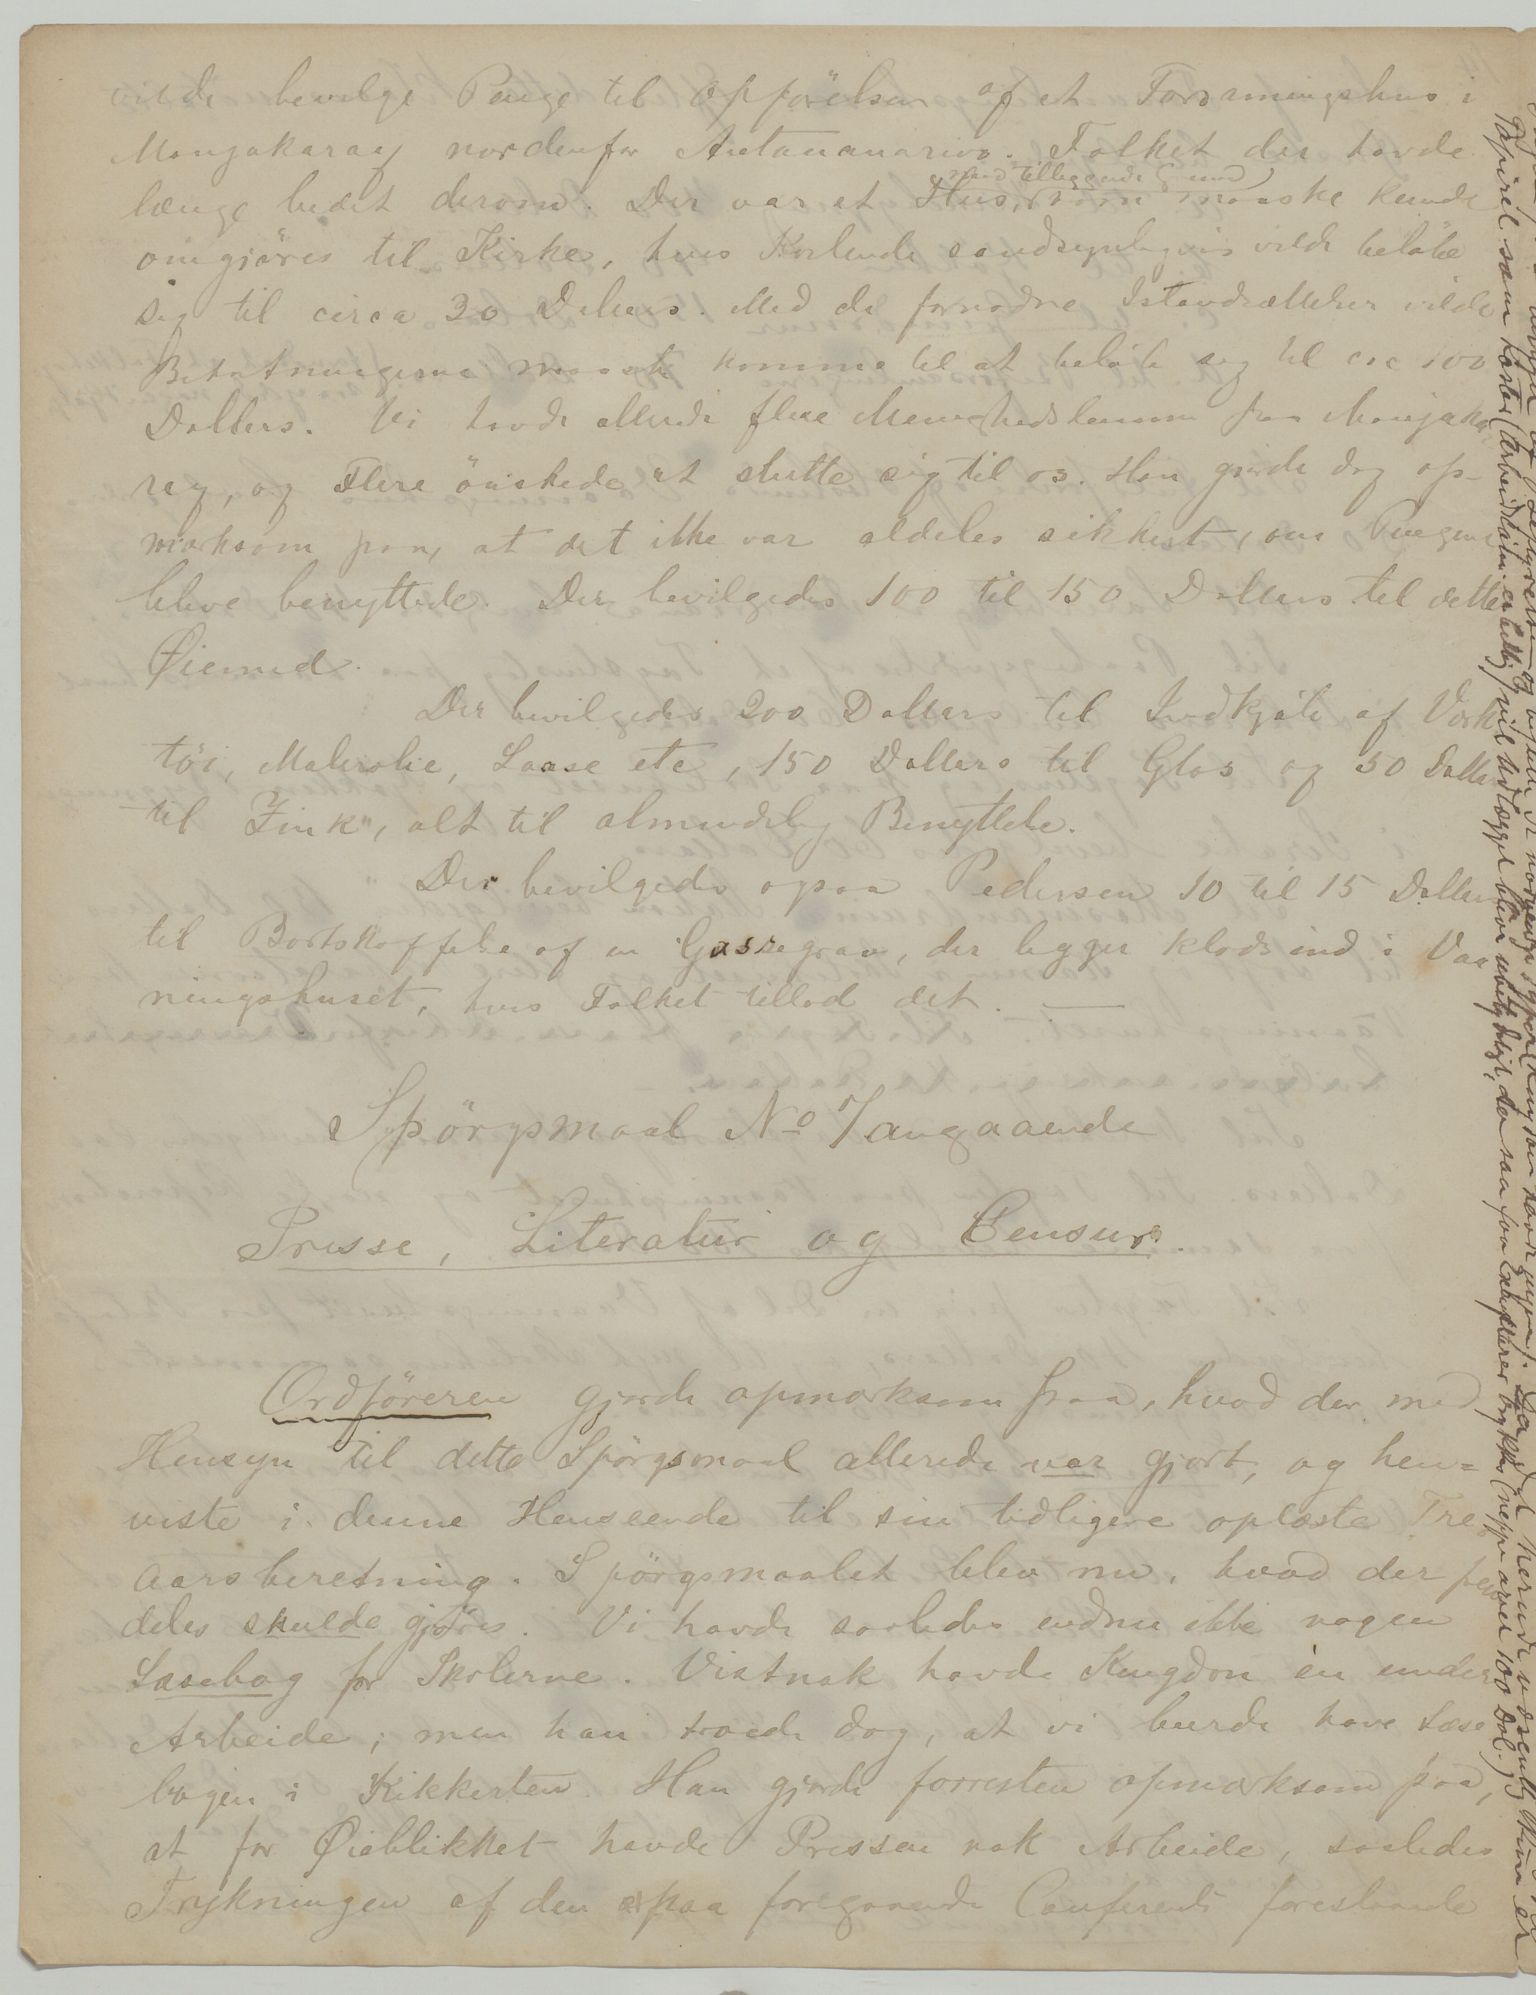 vilde bevilge Penge til Opförelsen af et Forsamingshus i
Manjakaray nordenfor Antananarivo. Folket der havde
længe bedet derom. Der var et Hus, (med tilliggende Grund) som maaske kunde
omgjöres til Kirke, hvis Kostende sandsynligvis vilde belöbe
sig til circa 30 Dollars. Med de fornödne Istandsættelser vilde
Bekostningerne maaske komme til at belöbe sig til circ 100
Dollars. Vi havde allerede flere Menighedslemmer fra Manjaka
ray, og Flere önskede at slutte sig til os. Han gjorde dog op-
mærksom paa, at det ikke var aldeles sikkert, om Pengene
bleve benyttede. Der bevilgedes 100 til 150 Dollars til dette
Øiemed.
Der bevilgedes 200 Dollars til Indkjöb af Værk
töi, Materialie, Laase etc, 150 Dollars til Glas og 50 Dollars
til Zink, alt til almindelig Benyttelse.
Der bevilgedes ogsaa Pedersen 10 til 15 Dollars
til Bortskaffelse af en Gassegrav, der ligger klods ind i Vaa
ningshuset, hvis Folket tillod det. —
Spörgsmaal No 7 angaaende
Presse, Literatur og Censur.
Ordföreren gjorde opmærksom paa, hvad der med
Hensyn til dette Spörgsmaal allerede var gjort, og hen=
viste i denne Henseende til sin tidligere oplæste Tre
aarsberetning. Spörgsmaalet blev nu, hvad der frem
deles skulde gjöres. Vi havde saaledes endnu ikke nogen
Læsebog for Skolerne. Vistnok havde Kingdon en under
Arbeide; men han troede dog, at vi burde have Læse
bogen i Kikkerten. Han gjorde forresten opmærksom paa,
at for Øieblikket havde Pressen nok Arbeide, saaledes
Trykningen af den paa foregaaende Conferents foreslaaede
Papiret som koster (Arbeidslön er billig) vil Udlægget blive ubetydeligt, da saa faa Exemplarer trykkes (neppe over 100 Dol.)